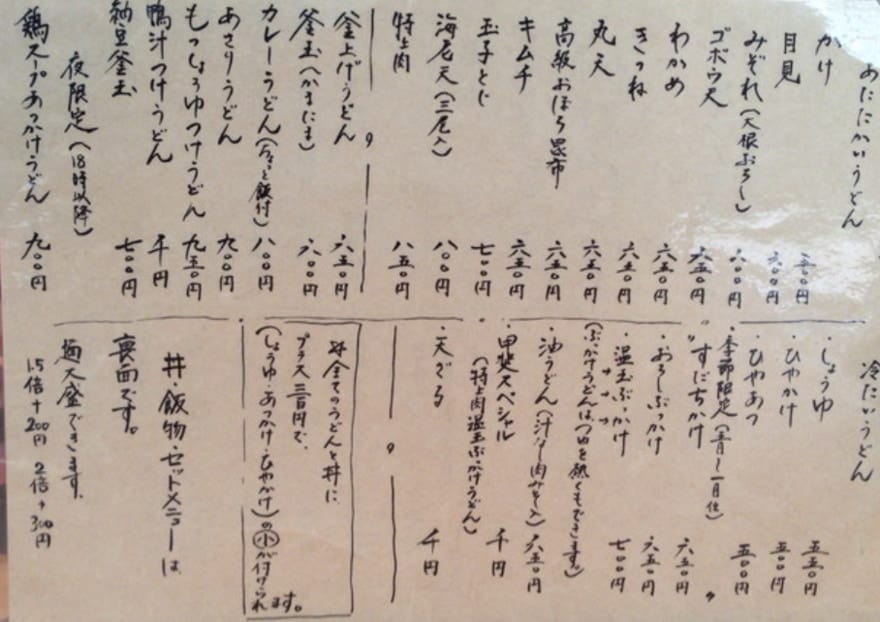 あたたかいうどん
かけ 五五〇円
月見 六〇〇円
みぞれ(大根おろし) 六〇〇円
ゴボウ天 六五〇円
わかめ 六五〇円
きつね 六五〇円
丸天 六五〇円
高級おぼろ昆布 六五〇円
キムチ 六五〇円
玉子とじ 七〇〇円
海老天(三尾入) 八〇〇円
特上肉 八五〇円
釜上げうどん 六五〇円
釜玉(かまたま) 六〇〇円
カレーうどん(ちょっと飯付) 八〇〇円
あさりうどん 九〇〇円
もっしょうゆつけうどん 九五〇円
鴨汁つけうどん 千円
納豆釜玉 七〇〇円
夜限定(18時以降)
鶏スープあつかけうどん 九〇〇円
冷たいうどん
・しょうゆ 五五〇円
・ひやかけ 五五〇円
・ひやあつ 五五〇円
・季節限定(五月〜一月位)
すだちかけ 〃
・おろしぶっかけ 六五〇円
・温玉ぶっかけ 六五〇円
(ぶっかけうどんはつゆを熱くもできます。) 七〇〇円
・油うどん(汁なし肉みそ入) 六五〇円
・甲斐スペシャル 千円
(特上肉温玉ぶっかけうどん)
・天ざる 千円
※全てのうどんと丼に、
プラス三百円で、
(しょうゆ・あつかけ・ひやかけ)の小が付けられます。
丼・飯物・セットメニューは
裏面です。
麺大盛できます。
1.5倍+200円 2倍+300円